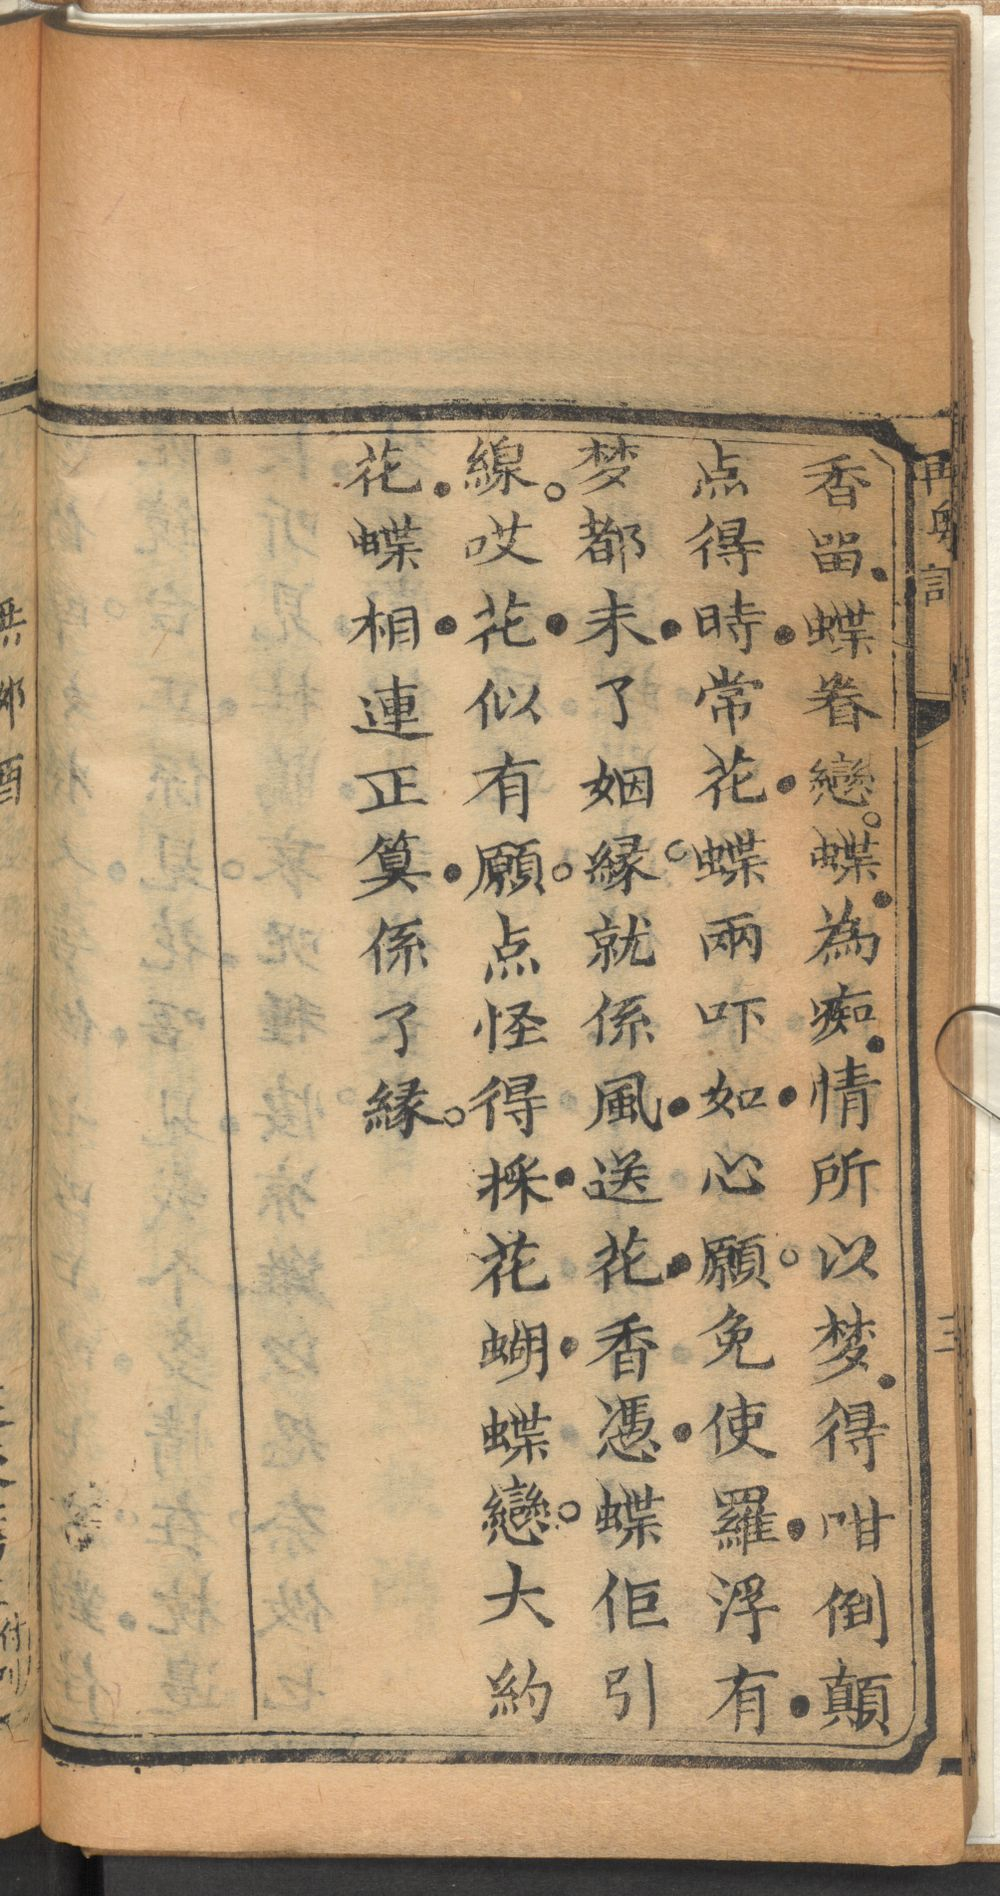 香畱蝶眷戀。蝶為痴情所以梦得咁倒顛
点得時常花蝶兩吓如心願。免使羅浮有
梦都未了姻緣。就係風送花香憑蝶佢引
線。哎花似有願。点怪得採花蝴蝶戀。大約
花蝶相連正算係了緣。
三